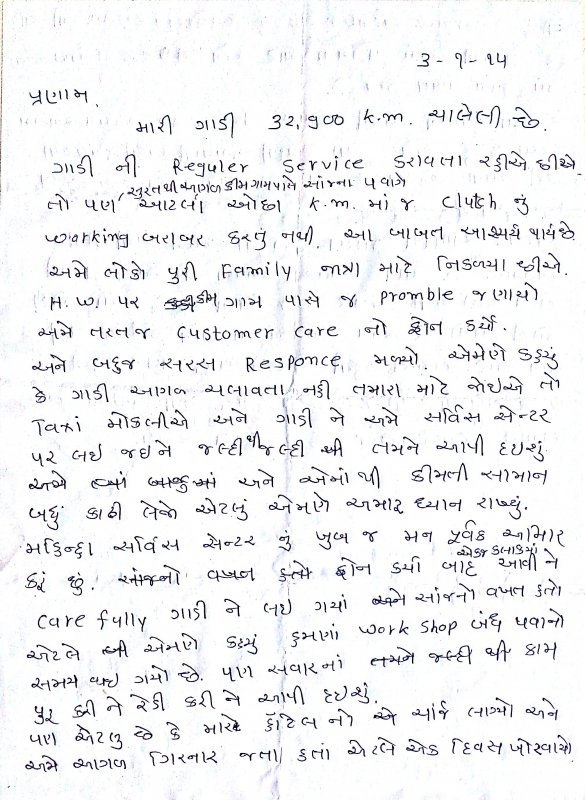 ૩ - ૧ - ૧૫
પ્રણામ,
મારી ગાડી 32,900 k.m. ચાલેલી છે.
ગાડી ની Reguler Service કરાવતા રહીએ છીએ.
સુરતથી આગળ કીમ ગામ પાસે સાંજના ૫ વાગે
તો પણ આટલા ઓછા k.m. માં જ Clutch નું
working બરાબર કરતું નથી. આ બાબત આશ્ચર્ય થાય છે
અમે લોકો પુરી Family જાત્રા માટે નિકળ્યા છીએ.
H.W. પર કીમ ગામ પાસે જ Promble જણાયો
અમે તરત જ Customer care નો ફોન કર્યો.
અને બહુજ સરસ Responce મળ્યો. એમણે કહ્યું
કે ગાડી આગળ ચલાવતા નહી તમારા માટે જોઇએ તો
Taxi મોકલીએ અને ગાડી ને અમે સર્વિસ સેન્ટર
પર લઇ જઇને જલ્દીથી જલ્દી તમને આપી દઇશું
અને એમાંથી કીમતી સામાન
બધું કાઢી લેજો એટલું એમણે અમારૂ ધ્યાન રાખ્યું.
મહિન્દ્રા સર્વિસ સેન્ટર નું ખુબ જ મન પૂર્વક આભાર
એકજ કલાકમાં
કરૂં છું. સાંજનો વખત હતો ફોન કર્યા બાદ આવી ને
Care fully ગાડી ને લઇ ગયાં અને સાંજનો વખત હતો
એટલે એમણે કહ્યું હમણાં work shop બંધ થવાનો
સમય થઇ ગયો છે. પણ સવારનાં જલ્દી થી કામ
પુરૂ કરી ને રેડી કરી ને આપી દઇશું.
પણ એટલુ છે કે મારે હોટેલ નો ચાર્જ લાગ્યો અને
અમે આગળ ગિરનાર જતા હતાં એટલે એક દિવસ ખોરવાયો.